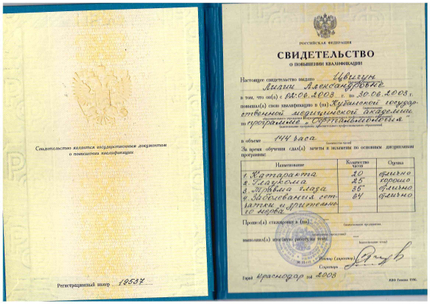 Свидетельство является государственным документом
о повышении квалификации
Регистрационный номер 19537
РОССИЙСКАЯ ФЕДЕРАЦИЯ
СВИДЕТЕЛЬСТВО
О ПОВЫШЕНИИ КВАЛИФИКАЦИИ
Настоящее свидетельство выдано Цвигун
Лилии Александровне
в том, что он(а) с 02.06.2003 по 30.06.2003
повышал(а) свою квалификацию в (на) Кубанской государ-
ственной медицинской академии
по программе: Офтальмология
в объеме 144 часа
За время обучения сдал(а) зачеты и экзамены по основным дисциплинам
программы:
Наименование Количество часов Оценка
1. Катаракта 20 отлично
2. Глаукома 25 хорошо
3. Травма глаза 35 отлично
4. Заболевания сет- 64 отлично
чатки и зрительно-
го нерва
Прошел(а) стажировку в (на)
выполнил(а) итоговую работу на тему
Ректор (директор)
Секретарь
Город Краснодар год 2003